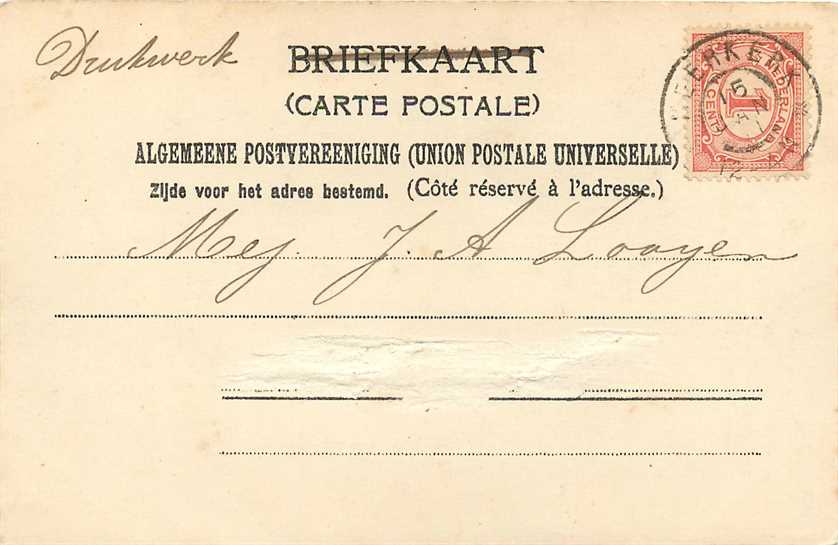 Drukwerk
BRIEFKAART
(CARTE POSTALE)
ALGEMEENE POSTVEREENIGING (UNION POSTALE UNIVERSELLE)
Zijde voor het adres bestemd. (Côté réservé à l'adresse.)
Mej. J. A Looyen
NEDERLAND
1
CENT
15